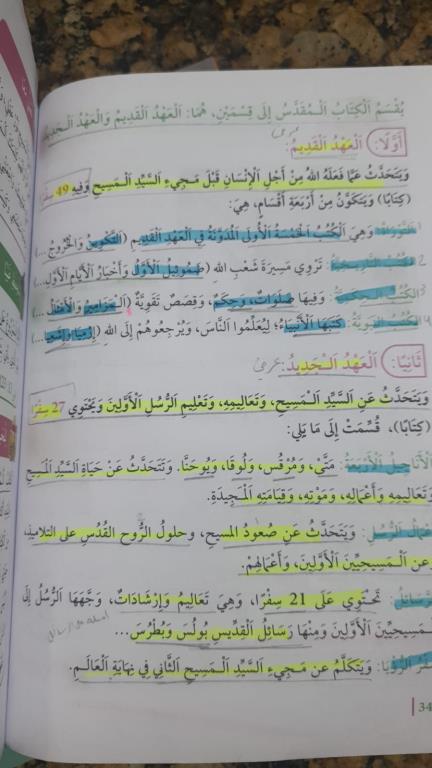 يُقْسَمُ ٱلْكِتَابُ ٱلْـمُقَدَّسُ إِلَى قِسْمَيْنِ، هُمَا: ٱلْعَهْدُ ٱلْقَدِيمُ وَٱلْعَهْدُ ٱلْـجَدِيدُ
أَوَّلًا: ٱلْعَهْدُ ٱلْقَدِيمُ:
وَيَتَحَدَّثُ عَمَّا فَعَلَهُ ٱللهُ مِنْ أَجْلِ ٱلْإِنْسَانِ قَبْلَ مَـجِيءِ ٱلسَّيِّدِ ٱلْـمَسِيحِ وَفِيهِ 49 سِفْرًا
(كِتَابًا) وَيَتَكَوَّنُ مِنْ أَرْبَعَةِ أَقْسَامٍ، هِيَ:
1 وَهِيَ ٱلْكُتُبُ ٱلْخَمْسَةُ ٱلْأُولَى ٱلْمُدَوَّنَةُ فِي ٱلْعَهْدِ ٱلْقَدِيمِ (ٱلتَّكْوِينُ وَٱلْخُرُوجُ ...)
2 ٱلْكُتُبُ ٱلتَّارِيخِيَّةُ: تَرْوِي مَسِيرَةَ شَعْبِ ٱللهِ (صَمُوئِيلُ ٱلْأَوَّلُ وَأَخْبَارُ ٱلْأَيَّامِ ٱلْأَوَّلُ...)
3 ٱلْكُتُبُ ٱلْحِكْمِيَّةُ: وَفِيهَا صَلَوَاتٌ، وَحِكَمٌ، وَقِصَصٌ تَقَوِيَّةٌ (ٱلْـمَزَامِيرُ وَٱلْأَمْثَالُ ...)
4 ٱلْكُتُبُ ٱلنَّبَوِيَّةُ: كَتَبَهَا ٱلْأَنْبِيَاءُ؛ لِيُعَلِّمُوا ٱلنَّاسَ، وَيُرْجِعُوهُمْ إِلَى ٱللهِ (إِرْمِيَا وَإِشَعْيَا...)
ثَانِيًا: ٱلْعَهْدُ ٱلْـجَدِيدُ:
وَيَتَحَدَّثُ عَنِ ٱلسَّيِّدِ ٱلْـمَسِيحِ، وَتَعَالِيمِهِ، وَتَعْلِيمِ ٱلرُّسُلِ ٱلْأَوَّلِينَ وَيَحْتَوِي 27 سِفْرًا
(كِتَابًا)، قُسِّمَتْ إِلَى مَا يَلِي:
ٱلْأَنَاجِيلُ ٱلْأَرْبَعَةُ: مَتَّى، وَمُرْقُس، وَلُوقَا، وَيُوحَنَّا. وَتَتَحَدَّثُ عَنْ حَيَاةِ ٱلسَّيِّدِ ٱلْمَسِيحِ
وَتَعَالِيمِهِ وَأَعْمَالِهِ، وَمَوْتِهِ، وَقِيَامَتِهِ ٱلْـمَجِيدَةِ.
أَعْمَالُ ٱلرُّسُلِ: وَيَتَحَدَّثُ عَنْ صُعُودِ المسيحِ، وحلولُ الرُّوحِ القُدُسِ على التلاميذ،
وعن ٱلْـمَسِيحِيِّينَ ٱلْأَوَّلِينَ، وَأَعْمَالِهِمْ.
ٱلرَّسَائِلُ: تَحْتَوِي عَلَى 21 سِفْرًا، وَهِيَ تَعَالِيمُ وَإِرْشَادَاتٌ، وَجَّهَهَا ٱلرُّسُلُ إِلَى
ٱلْمَسِيحِيِّينَ ٱلْأَوَّلِينَ وَمِنْهَا رَسَائِلُ ٱلْقِدِّيسِ بُولُسَ وَبُطْرُسَ...
سِفْرُ ٱلرُّؤْيَا: وَيَتَكَلَّمُ عَنْ مَـجِيءِ ٱلسَّيِّدِ ٱلْـمَسِيحِ ٱلثَّانِي فِي نِهَايَةِ ٱلْعَالَـمِ.
34